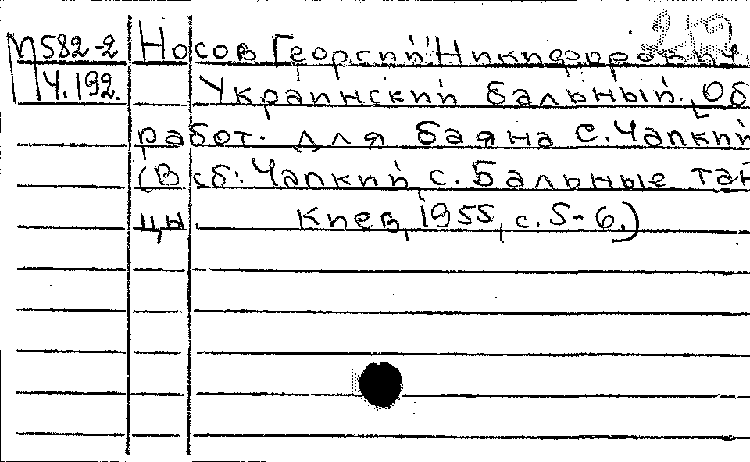 М582-2 Носов Георгий Никифорович
Ч.192. Украинский бальный. [Об
работ. для баяна С. Чапкий
(В сб: Чапкий, С. Бальные тан
цы. Киев, 1955, с. 5-6.)